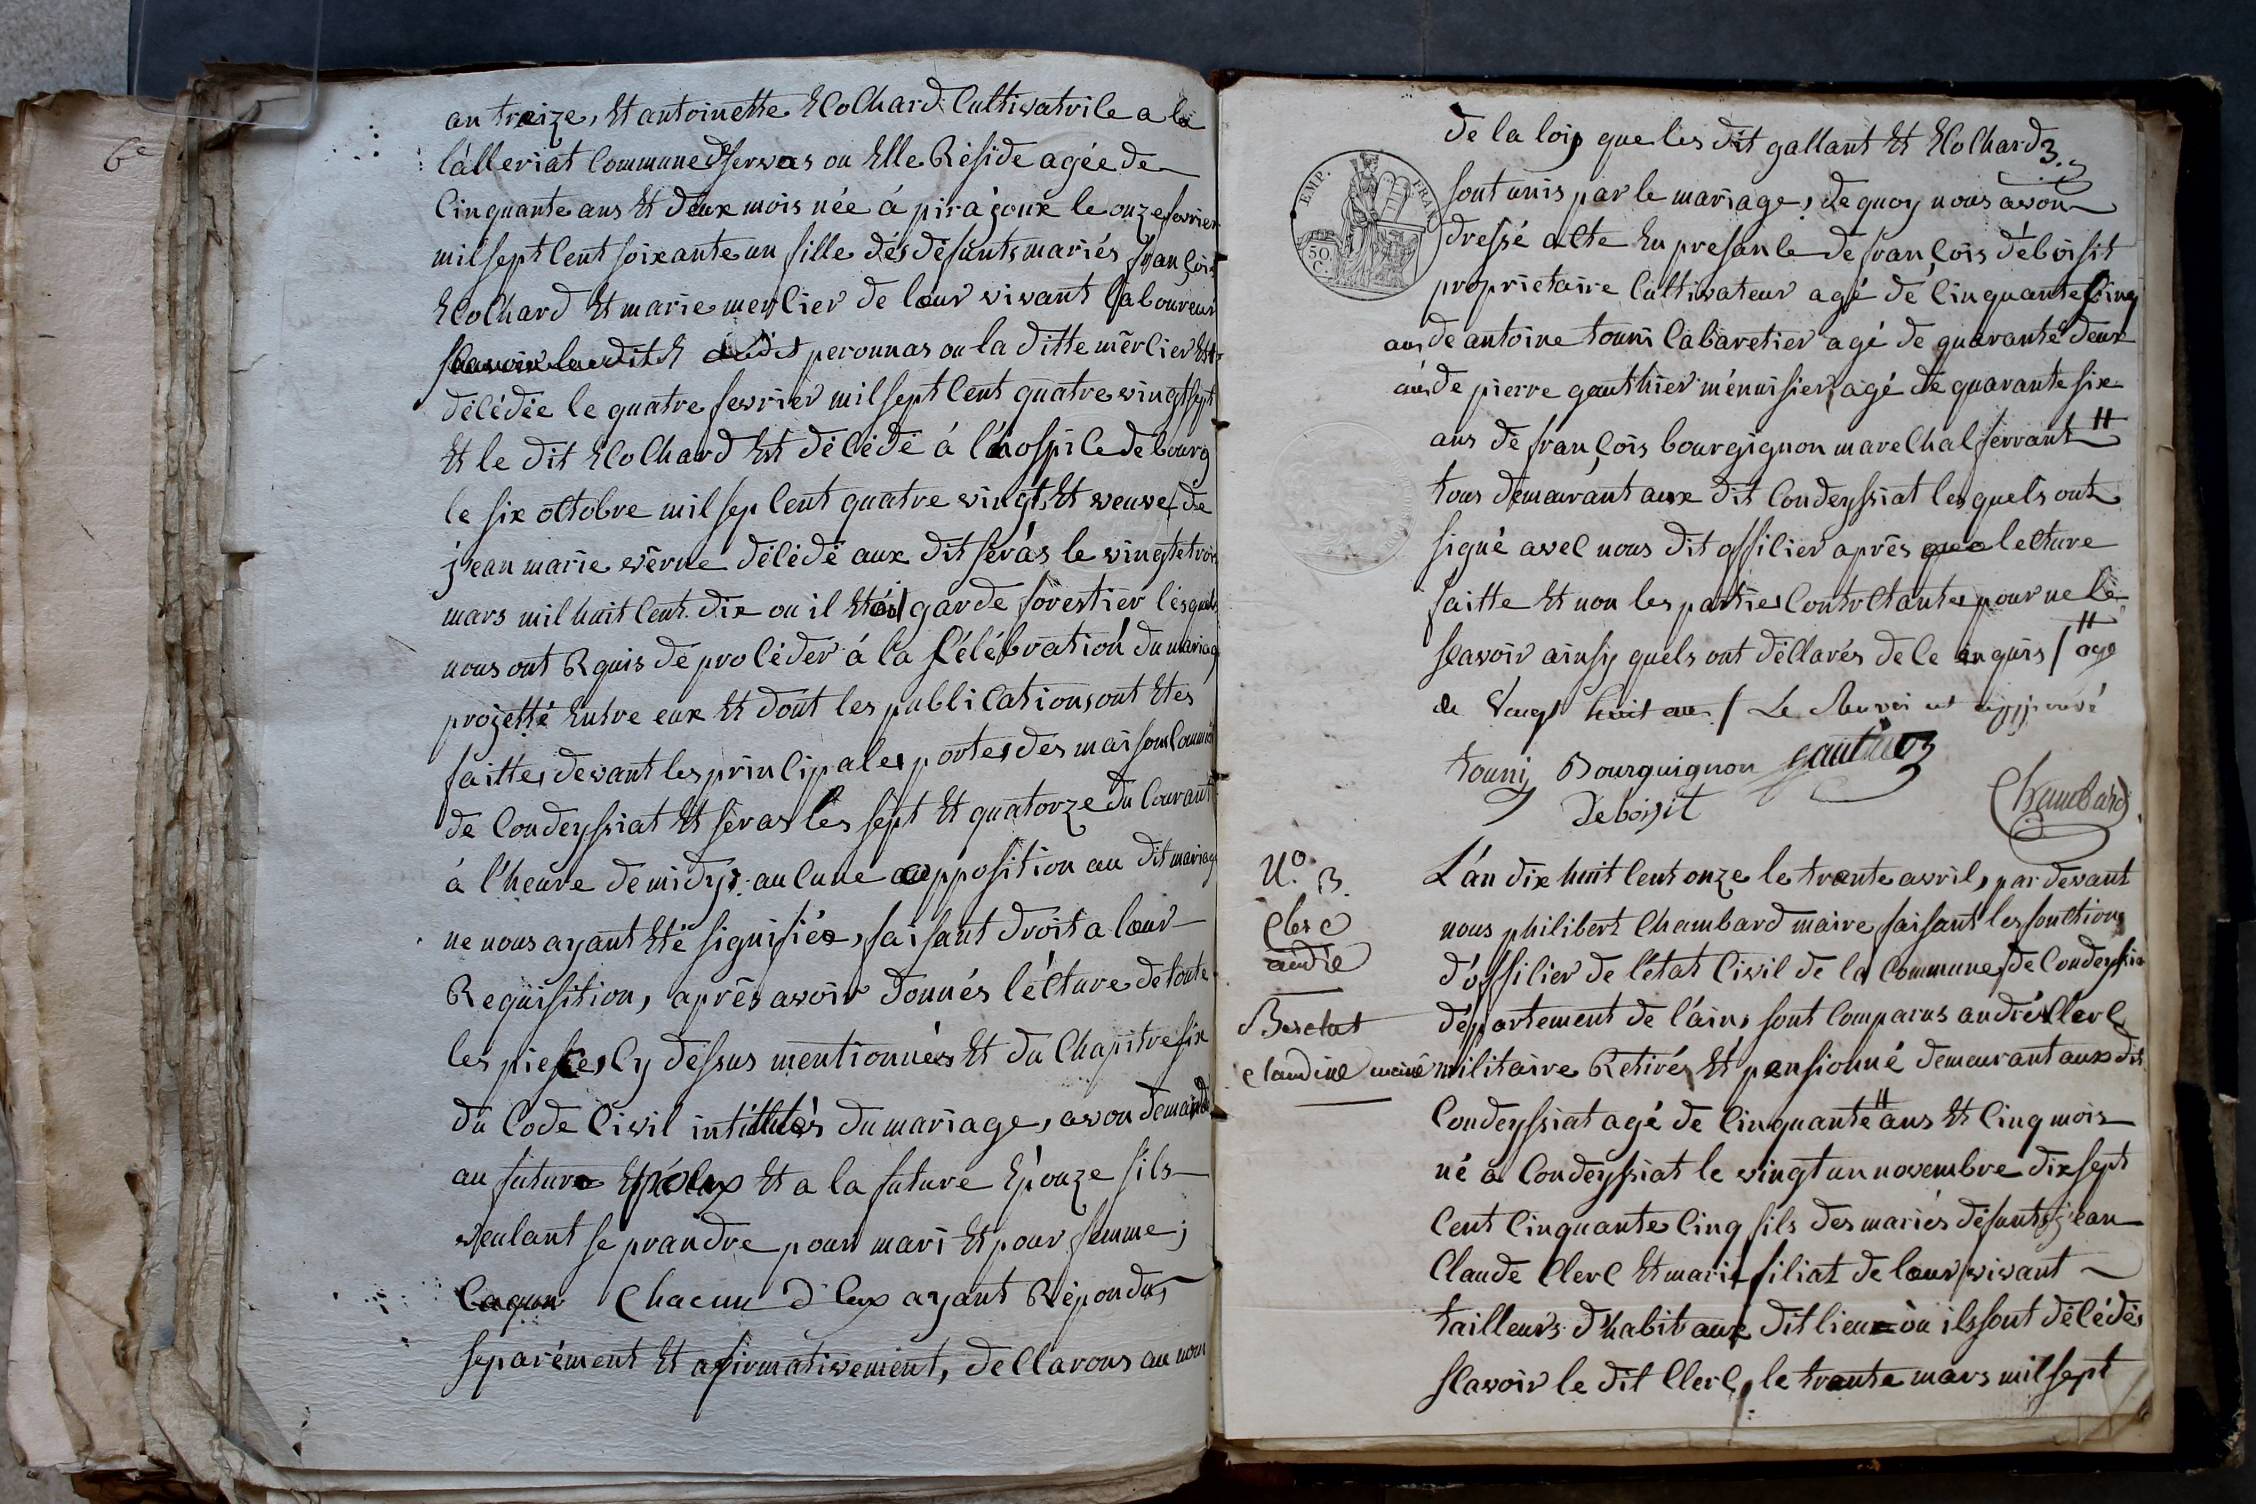 6e
an treize, Et antoinette Ecochard Cultivatrice a la
lalleriat Commune d'servas ou Elle Réside agée de
Cinquante ans Et deux mois née á pirajoux le onze fevrier
mil sept Cent soixante un fille dés défunts mariés françois
Ecochard Et marie mercier de leur vivant Laboureur
peronnas ou la ditte mercier Est
décédée le quatre fevrier mil sept Cent quatre vingt sept
Et le dit Ecochard Est décédé á l'hospice de bourg
le six octobre mil sep Cent quatre vingt, Et veuve de
jean marie verne décédé aux dit servas le vingt trois
mars mil huit Cent dix ou il Etoit garde forestier lesquels
nous ont Requis de procéder á la Célébration du mariage
projetté Entre eux Et dont les publications ont Etes
faittes devant les principales portes des maisons Commune
de Condeyssiat Et servas les sept Et quatorze du Courant
á l'heure de midy, aucune opposition au dit mariage
ne nous ayant Eté signifiée, faisant droit a leur
Requisition, aprês avoir donnés lécture de toute
les pieces Cy dessus mentionnées Et du Chapitre six
du Code Civil intitulés du mariage, avon demandé
au future Epoux Et a la future Epouze s'ils
veulant se prandre pour mari Et pour femme ;
Chacun d'Eux ayant Répondus
separément Et afirmativement, déclarons au nom
de la loix que les dit gallant Et Ecochard
3.
EMP. FRAN.
50 C.
sont unis par le mariage, de quoy nous avon
dressé acte En presance de françois déboisit
proprietaire Cultivateur agé dé Cinquante Cinq
ans de antoine touni Cabaretier agé de quarante deux
ans de pierre gauthier ménuisier, agé de quarante six
ans de françois bourgignon marechal ferrant #
tous demeurant aux dit Condeyssiat lesquels ont
signé avec nous dit officier aprês que lecture
faitte Et non les parties Contractantes pour ne le
scavoir ainsy quels ont déclarés de ce enquis / # agé
de vingt huit ans / Le Renvoi est approuvé
touni Bourguignon gauthier
Deboisit Chambard
N.º 3.
Clerc
andré
Berchet
claudine marie
L'an dix huit Cent onze le trente avril, par devant
nous philibert Chambard maire faisant les fonctions
d'officier de l'état Civil de la Commune de Condeyssia
département de l'ain, sont Comparus andrés Clerc
militaire Retirés Et pensionné demeurant aux dit
Condeyssiat agé de Cinquante " ans Et Cinq mois
né a Condeyssiat le vingt un novembre dix sept
Cent Cinquante Cinq fils des mariés défunts jean
Claude Clerc Et marie filiat de leur vivant
tailleurs d'habit aux dit lieux où ils sont décédés
scavoir le dit Clerc, le trente mars mil sept